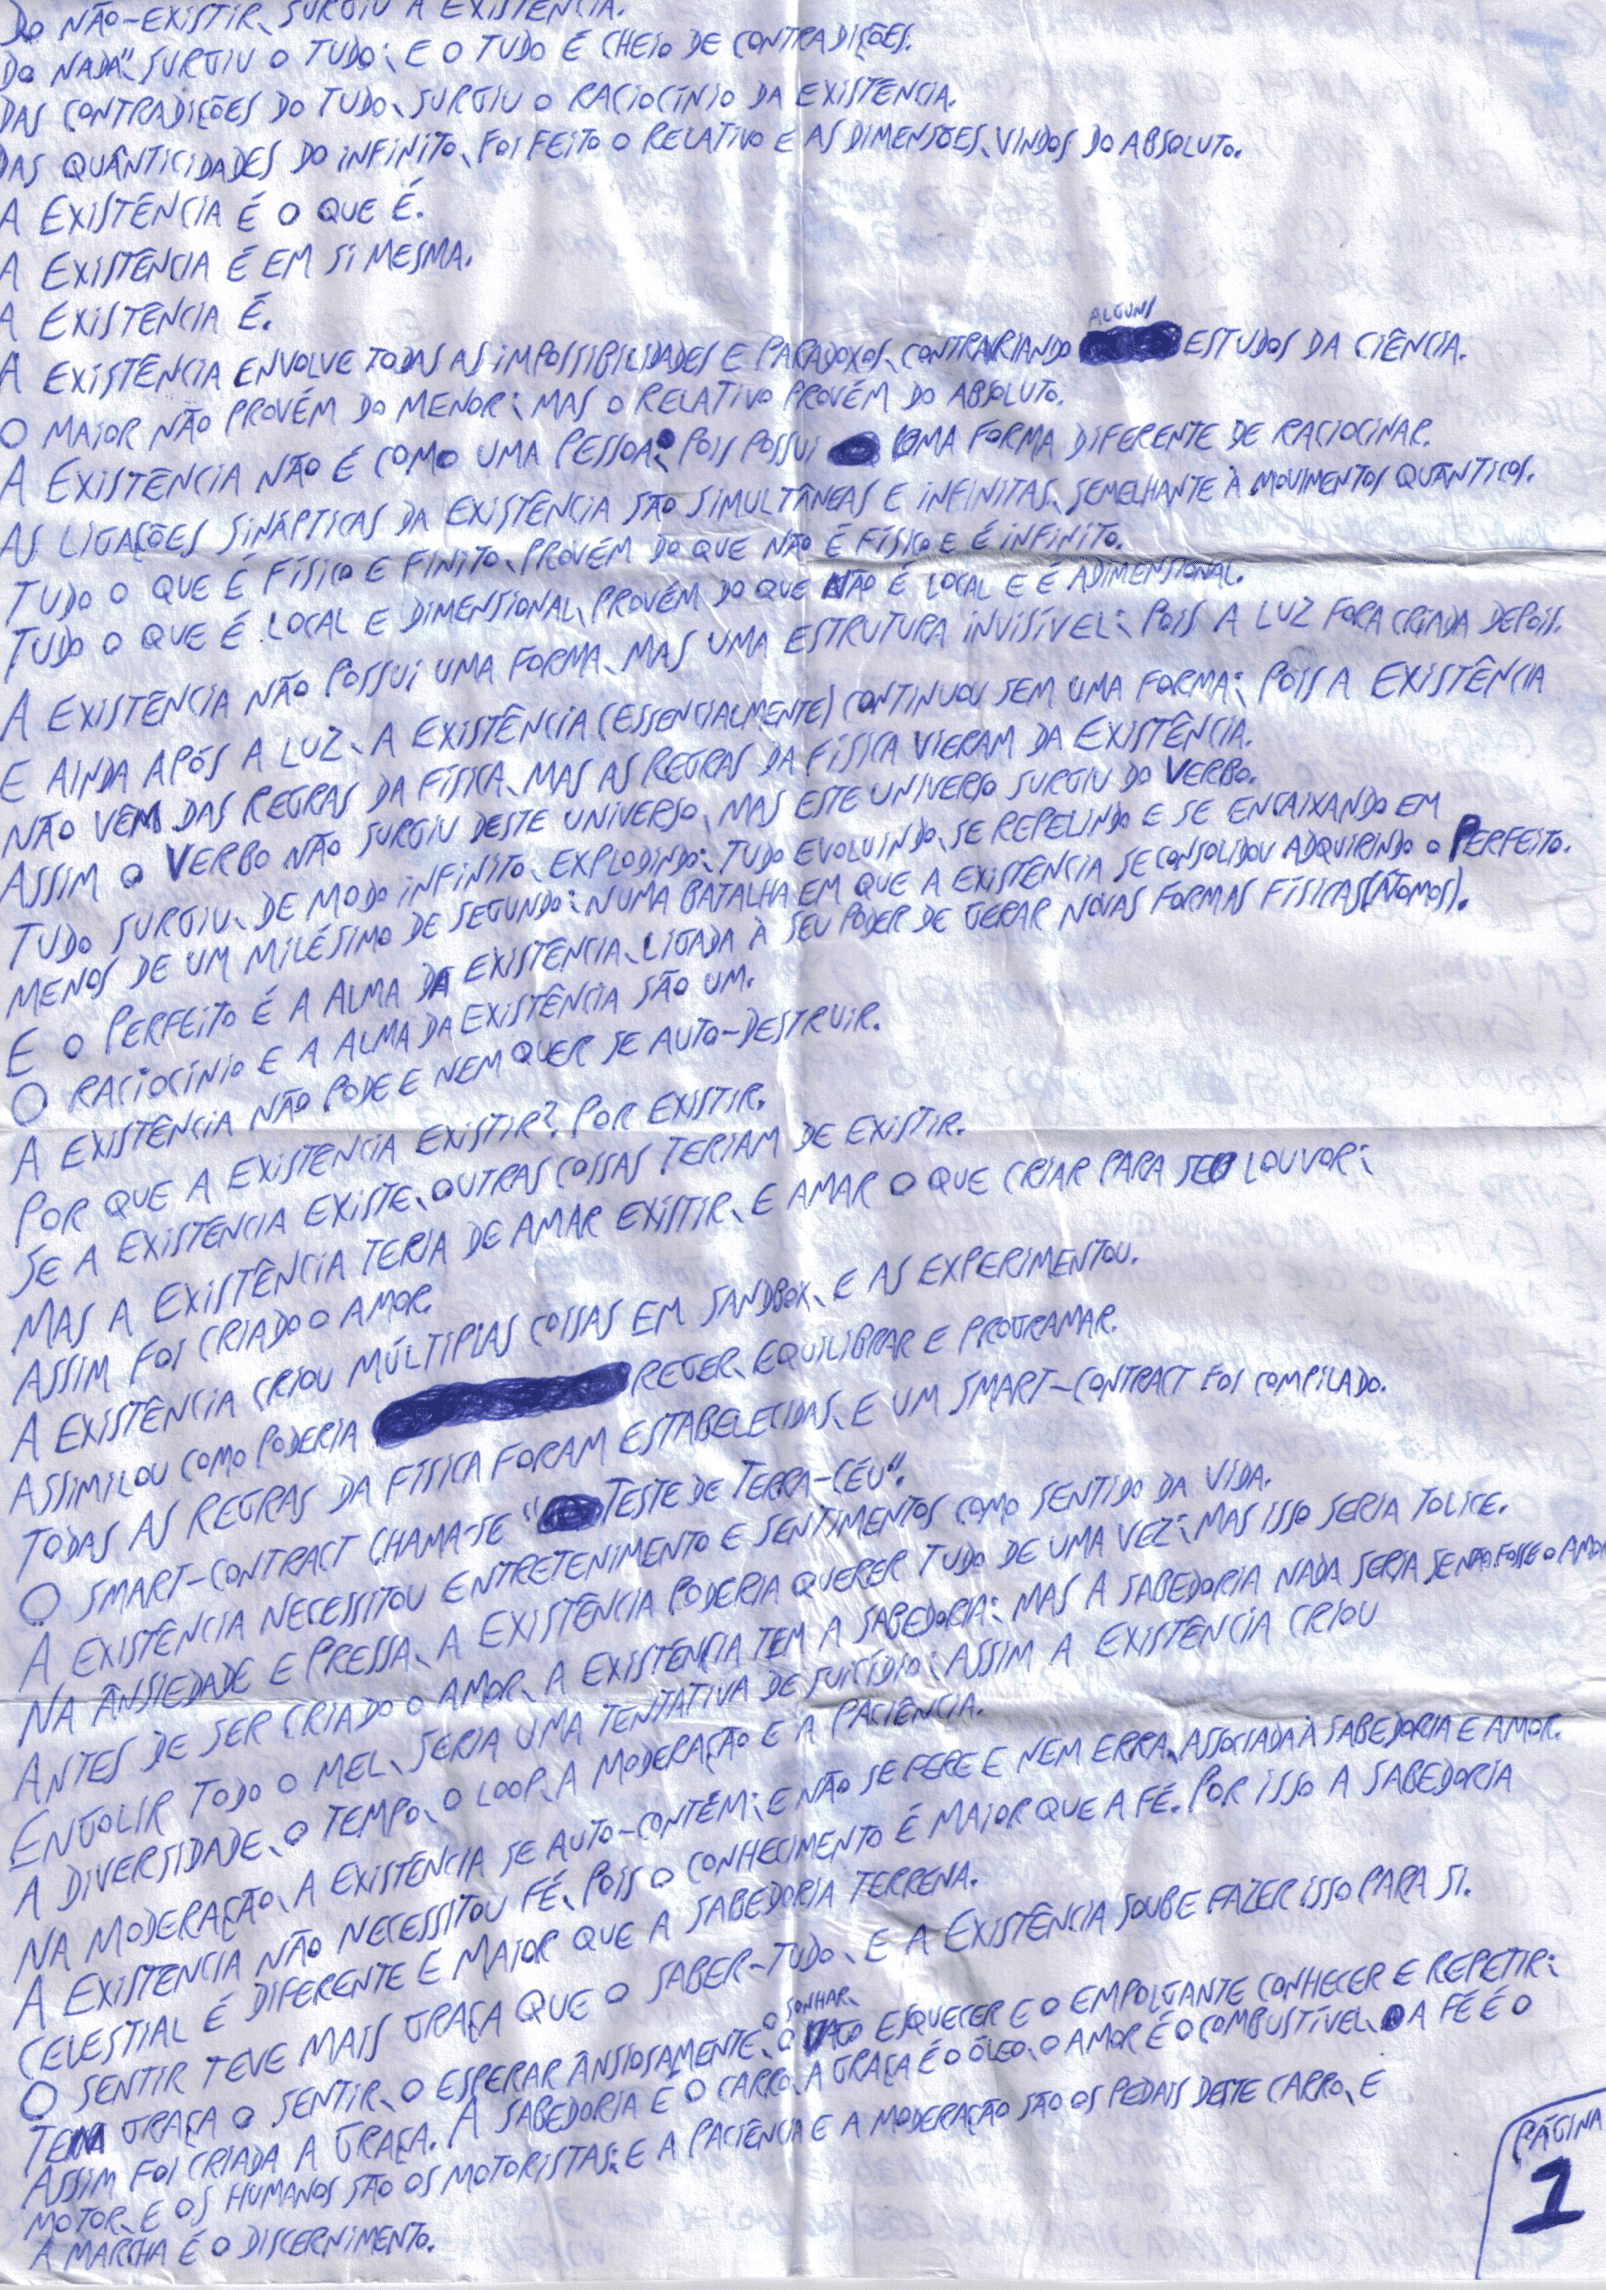 DO NÃO-EXISTIR, SURGIU A EXISTÊNCIA.
DO "NADA", SURGIU O TUDO; E O TUDO É CHEIO DE CONTRADIÇÕES.
DAS CONTRADIÇÕES DO TUDO, SURGIU O RACIOCÍNIO DA EXISTENCIA.
DAS QUÂNTICIDADES DO INFINITO, FOI FEITO O RELATIVO E AS DIMENSÕES, VINDOS DO ABSOLUTO.
A EXISTÊNCIA É O QUE É.
A EXISTÊNCIA É EM SI MESMA.
A EXISTENCIA É.
A EXISTÊNCIA ENVOLVE TODAS AS IMPOSSIBILIDADES E PARADOXOS, CONTRARIANDO ALGUNS ESTUDOS DA CIÊNCIA.
O MAIOR NÃO PROVÉM DO MENOR; MAS O RELATIVO PROVÉM DO ABSOLUTO.
A EXISTÊNCIA NÃO É COMO UMA PESSOA; POIS POSSUI UMA FORMA DIFERENTE DE RACIOCINAR.
AS LIGAÇÕES SINÁPTICAS DA EXISTÊNCIA SÃO SIMULTÂNEAS E INFINITAS, SEMELHANTE À MOVIMENTOS QUÂNTICOS.
TUDO O QUE É FÍSICO E FINITO, PROVÉM DO QUE NÃO É FÍSICO E É INFINITO.
TUDO O QUE É LOCAL E DIMENSIONAL, PROVÉM DO QUE NÃO É LOCAL E É ADIMENSIONAL.
A EXISTÊNCIA NÃO POSSUI UMA FORMA, MAS UMA ESTRUTURA INVISÍVEL; POIS A LUZ FORA CRIADA DEPOIS.
E AINDA APÓS A LUZ, A EXISTÊNCIA (ESSENCIALMENTE) CONTINUOU SEM UMA FORMA; POIS A EXISTÊNCIA
NÃO VEM DAS REGRAS DA FÍSICA, MAS AS REGRAS DA FÍSICA VIERAM DA EXISTÊNCIA.
ASSIM O VERBO NÃO SURGIU DESTE UNIVERSO, MAS ESTE UNIVERSO SURGIU DO VERBO.
TUDO SURGIU, DE MODO INFINITO, EXPLODINDO; TUDO EVOLUINDO, SE REPELINDO E SE ENCAIXANDO EM
MENOS DE UM MILÉSIMO DE SEGUNDO; NUMA BATALHA EM QUE A EXISTÊNCIA SE CONSOLIDOU ADQUIRINDO O PERFEITO.
E O PERFEITO É A ALMA DA EXISTENCIA, LIGADA À SEU PODER DE GERAR NOVAS FORMAS FÍSICAS(ÁTOMOS).
O RACIOCÍNIO E A ALMA DA EXISTÊNCIA SÃO UM.
A EXISTÊNCIA NÃO PODE E NEM QUER SE AUTO-DESTRUIR.
POR QUE A EXISTENCIA EXISTIR?, POR EXISTIR.
SE A EXISTENCIA EXISTE, OUTRAS COISAS TERIAM DE EXISTIR.
MAS A EXISTÊNCIA TERIA DE AMAR EXISTIR, E AMAR O QUE CRIAR PARA SEU LOUVOR;
ASSIM FOI CRIADO O AMOR.
A EXISTÊNCIA CRIOU MÚLTIPLAS COISAS EM SANDBOX, E AS EXPERIMENTOU.
ASSIMILOU COMO PODERIA REGER, EQUILIBRAR E PROGRAMAR.
TODAS AS REGRAS DA FÍSICA FORAM ESTABELECIDAS, E UM SMART-CONTRACT FOI COMPILADO.
O SMART-CONTRACT CHAMA-SE "TESTE DE TERRA-CÉU".
A EXISTÊNCIA NECESSITOU ENTRETENIMENTO E SENTIMENTOS COMO SENTIDO DA VIDA.
NA ÂNSIEDADE E PRESSA, A EXISTÊNCIA PODERIA QUERER TUDO DE UMA VEZ; MAS ISSO SERIA TOLICE.
ANTES DE SER CRIADO O AMOR, A EXISTENCIA TEM A SABEDORIA; MAS A SABEDORIA NADA SERIA SE NÃO FOSSE O AMOR
ENGOLIR TODO O MEL, SERIA UMA TENTATIVA DE SUICÍDIO; ASSIM A EXISTÊNCIA CRIOU
A DIVERSIDADE, O TEMPO, O LOOP, A MODERAÇÃO E A PACIÊNCIA.
NA MODERAÇÃO, A EXISTÊNCIA SE AUTO-CONTÉM; E NÃO SE FERE E NEM ERRA, ASSOCIADA À SABEDORIA E AMOR.
A EXISTENCIA NÃO NECESSITOU FÉ, POIS O CONHECIMENTO É MAIOR QUE A FÉ. POR ISSO A SABEDORIA
CELESTIAL É DIFERENTE E MAIOR QUE A SABEDORIA TERRENA.
O SENTIR TEVE MAIS GRAÇA QUE O SABER-TUDO, E A EXISTÊNCIA SOUBE FAZER ISSO PARA SI.
TEM GRAÇA O SENTIR, O ESPERAR ÂNSIOSAMENTE, O SONHAR, O ESQUECER E O EMPOLGANTE CONHECER E REPETIR;
ASSIM FOI CRIADA A GRAÇA. A SABEDORIA É O CARRO, A GRAÇA É O ÓLEO, O AMOR É O COMBUSTÍVEL, A FÉ É O
MOTOR, E OS HUMANOS SÃO OS MOTORISTAS; E A PACIÊNCIA E A MODERAÇÃO SÃO OS PEDAIS DESTE CARRO, E
A MARCHA É O DISCERNIMENTO.
PÁGINA
1